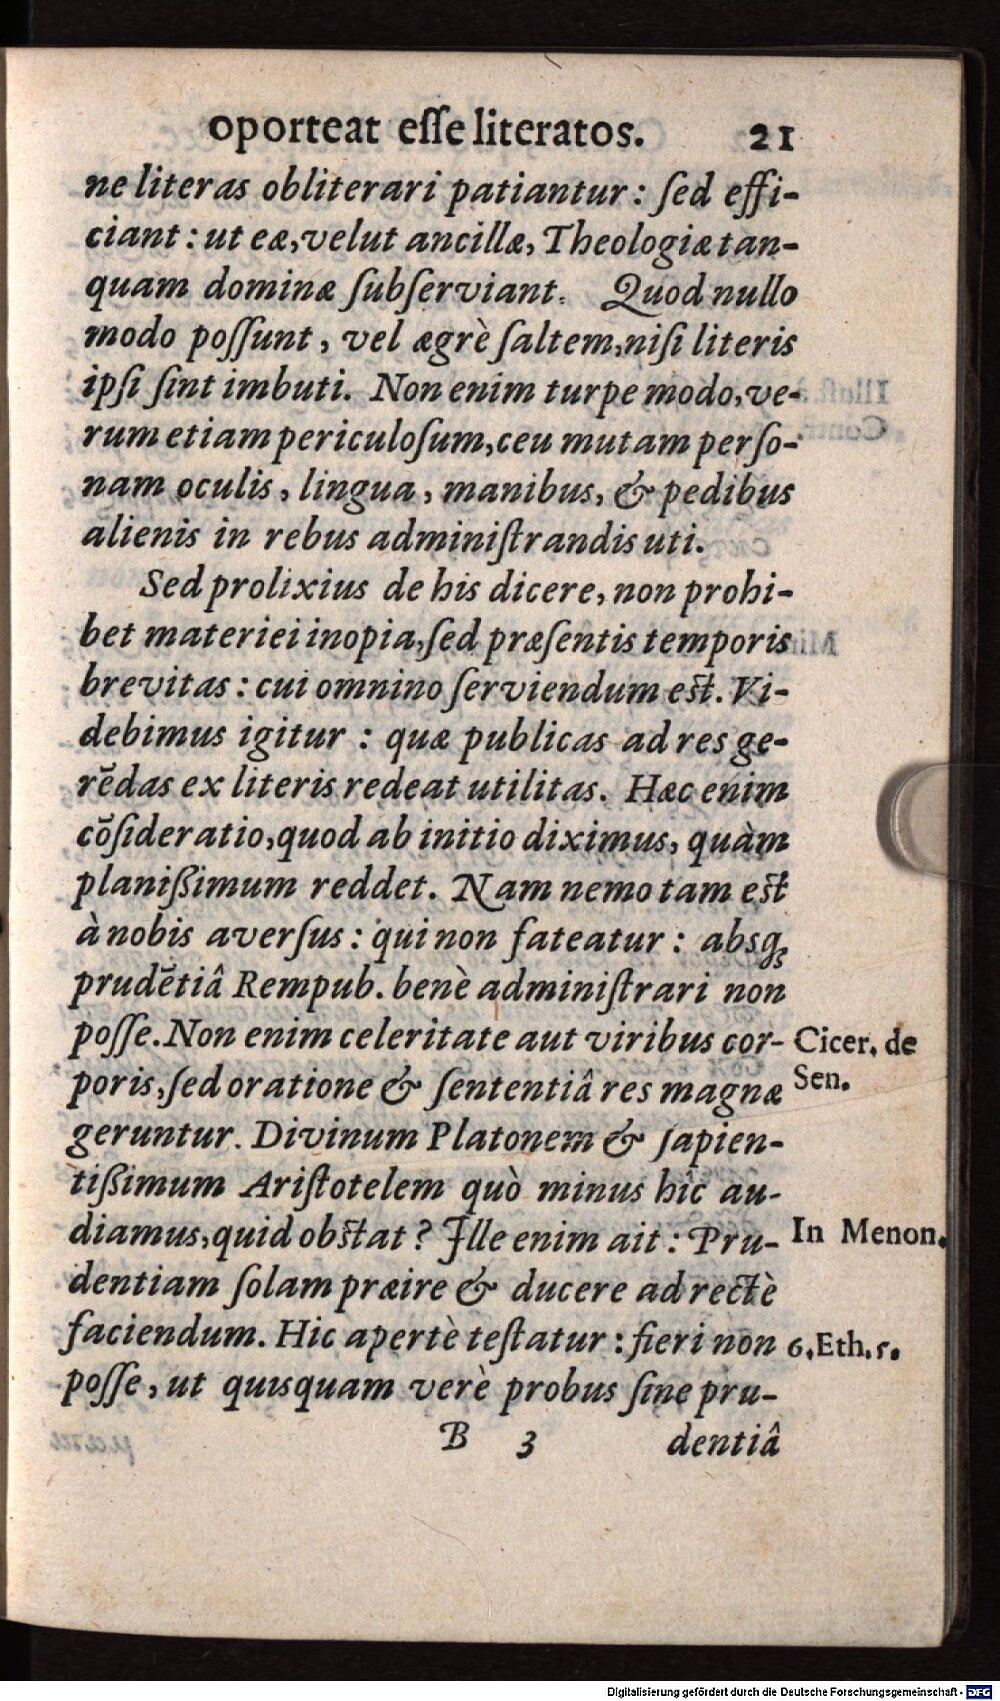 oporteat eſſe literatos. 21
ne literas obliterari patiantur: ſed effi-
ciant: ut eæ, velut ancillæ, Theologiæ tan-
quam dominæ ſubſerviant. Quod nullo
modo poſſunt, vel ægrè ſaltem, niſi literis
ipſi ſint imbuti. Non enim turpe modo, ve-
rum etiam periculoſum, ceu mutam perſo-
nam oculis, lingua, manibus, & pedibus
alienis in rebus adminiſtrandis uti.
Sed prolixius de his dicere, non prohi-
bet materiei inopia, ſed præſentis temporis
brevitas: cui omnino ſerviendum eſt. Vi-
debimus igitur: quæ publicas ad res ge-
rēdas ex literis redeat utilitas. Hæc enim
cōſideratio, quod ab initio diximus, quàm
planißimum reddet. Nam nemo tam eſt
à nobis averſus: qui non fateatur: absq́;
prudētiâ Rempub. benè adminiſtrari non
poſſe. Non enim celeritate aut viribus cor-
Cicer. de
Sen.
poris, ſed oratione & ſententiâ res magnæ
geruntur. Divinum Platonem & ſapien-
tißimum Ariſtotelem quò minus hîc au-
diamus, quid obſtat? Ille enim ait: Pru-
In Menon.
dentiam ſolam præire & ducere ad rectè
faciendum. Hic apertè teſtatur: fieri non
6. Eth. 5.
poſſe, ut quisquam verè probus ſine pru-
B 3 dentiâ
Digitalisierung gefördert durch die Deutsche Forschungsgemeinschaft - DFG